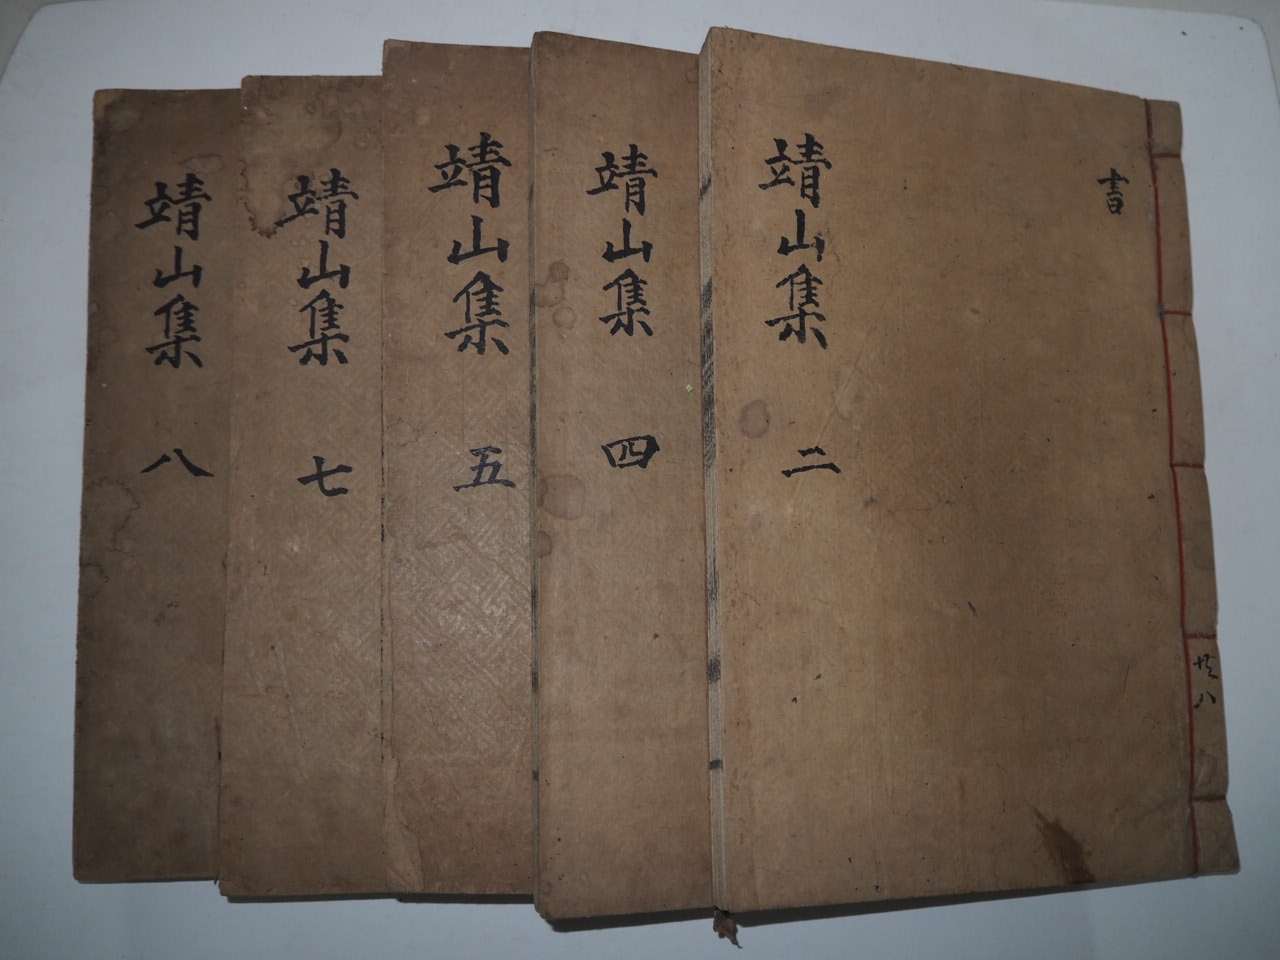 書
靖山集 二
共八
靖山集 四
靖山集 五
靖山集 七
靖山集 八